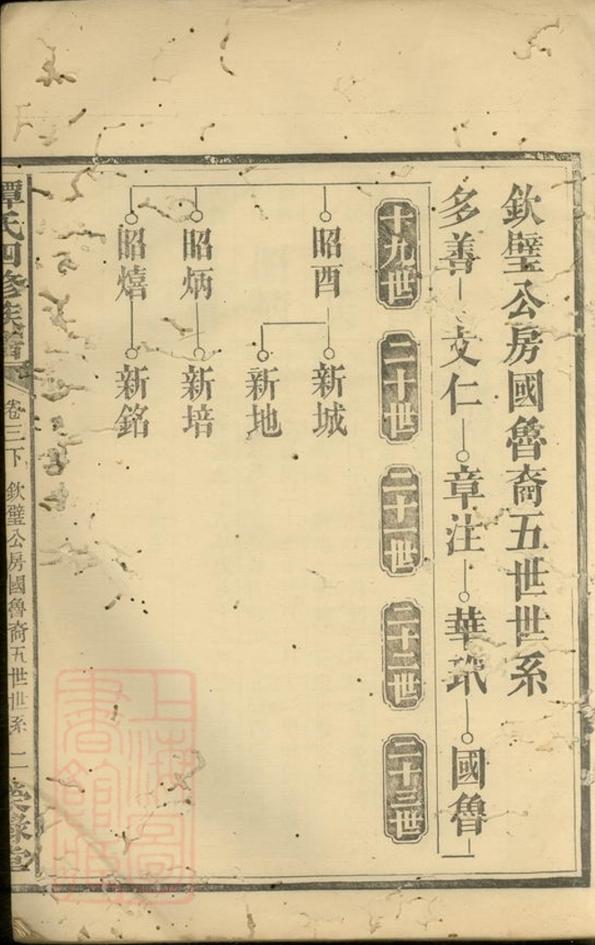 欽璧公房國魯裔五世世系
多善 文仁 章注 華 國魯
十九世 二十世 二十一世 二十二世 二十三世
昭酉 新城
新地
昭炳 新培
昭熺 新銘
譚氏四修族譜 卷三下 欽璧公房國魯裔五世世系 二
上海圖書館藏